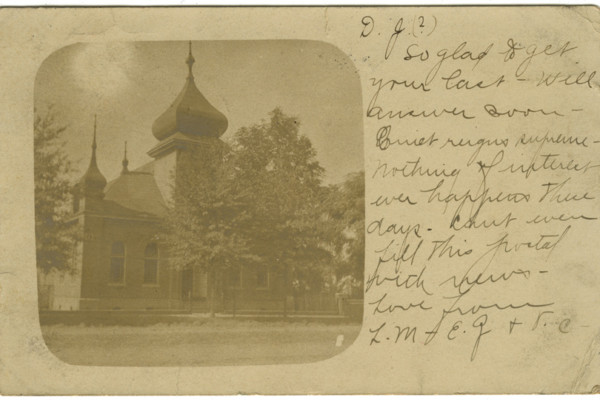 D. J. (?)
So glad to get
your last - Will
answer soon -
Quiet reigns supreme -
Nothing of interest
ever happens these
days. Can't even
fill this postal
with news -
Love from
L. M + E. J + V. C -